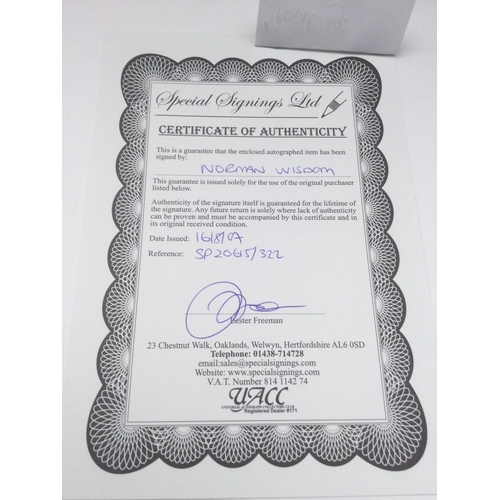 Special Signings Ltd
CERTIFICATE OF AUTHENTICITY
This is a guarantee that the enclosed autographed item has been
signed by:
NORMAN WISDOM
This guarantee is issued solely for the use of the original purchaser
listed below.
Authenticity of the signature itself is guaranteed for the lifetime of
the signature. Any future return is solely where lack of authenticity
can be proven and must be accompanied by this certificate and in
its original received condition.
Date Issued: 16/8/07
Reference: SP2065/322
Lester Freeman
23 Chestnut Walk, Oaklands, Welwyn, Hertfordshire AL6 0SD
Telephone: 01438-714728
email:sales@specialsignings.com
Website: www.specialsignings.com
V.A.T. Number 814 1142 74
UACC
UNIVERSAL AUTOGRAPH COLLECTORS CLUB
Registered Dealer #171